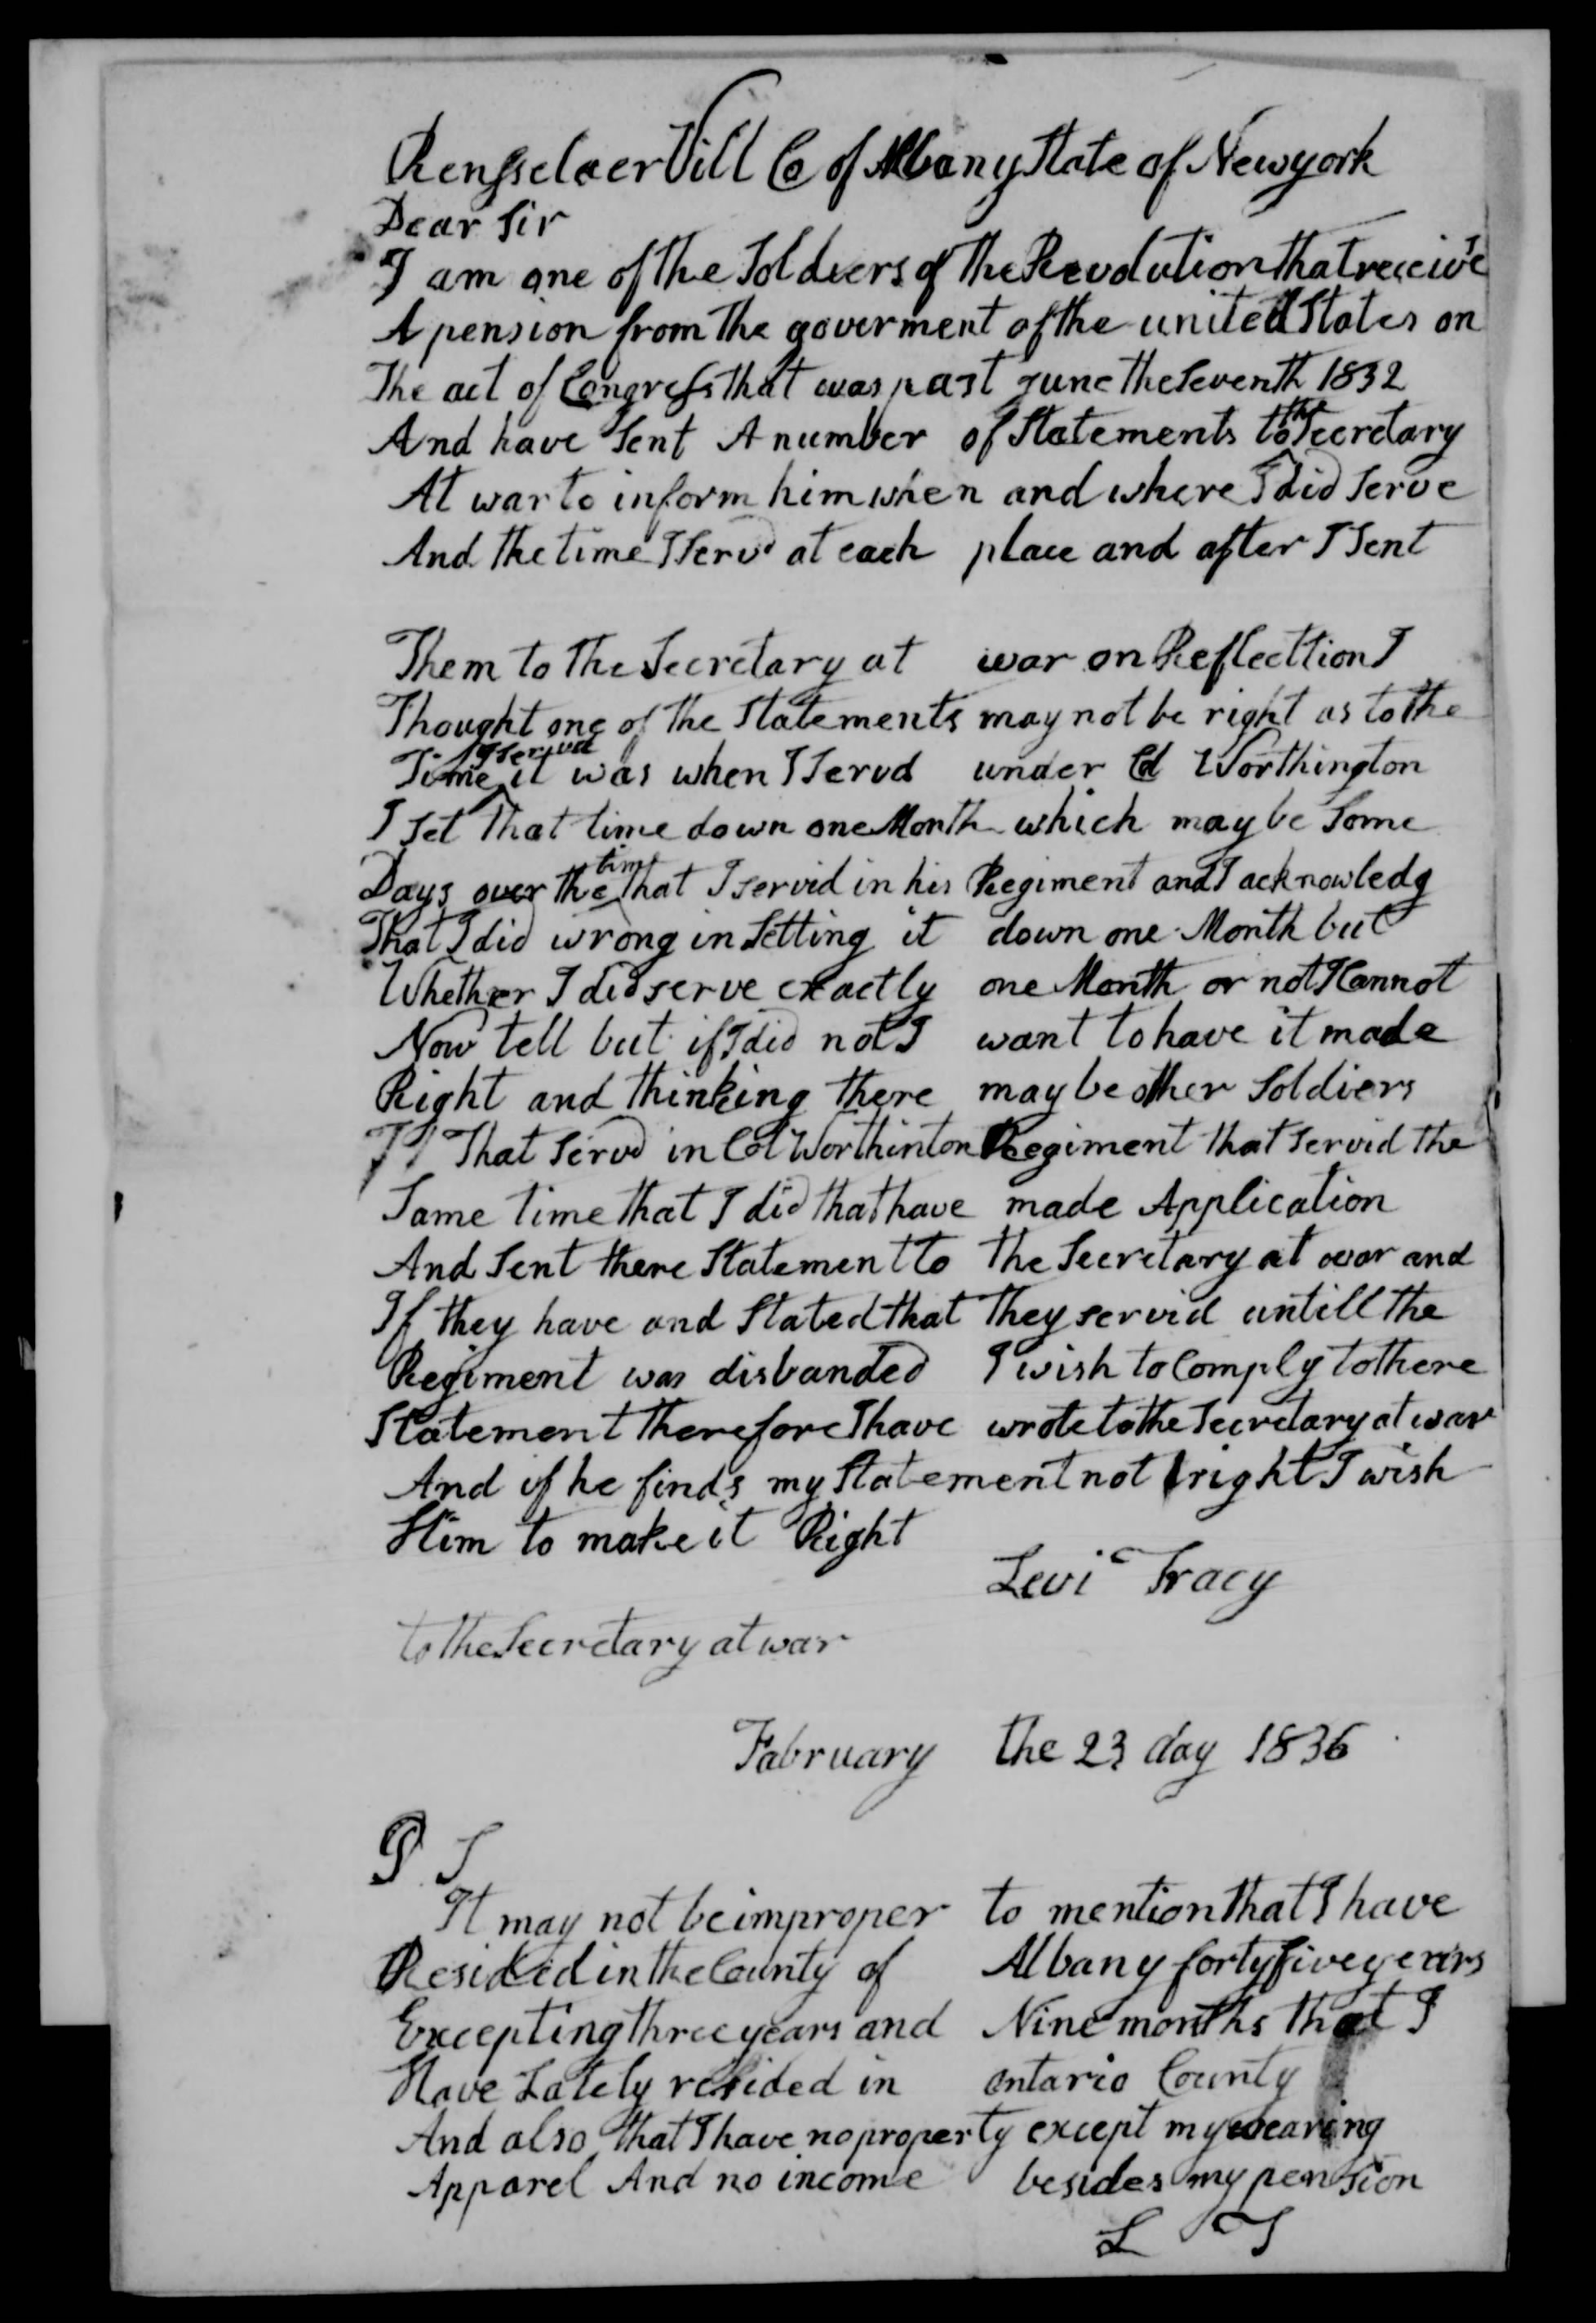 RensselaerVill Co of Albany State of Newyork
Dear Sir
I am one of the Soldiers of the Revolution that receive
A pension from the goverment of the united States on
The act of Congress that was past June the Seventh 1832
And have Sent A number of Statements to the Secretary
At war to inform him when and where I did Serve
And the time I Servd at each place and after I Sent
Them to the Secretary at war on Reflecttion I
Thought one of the Statements may not be right as to the
Time I Servd it was when I Servd under Col Worthington
I Set that time down one Month which may be Some
Days over the time that I servid in his Regiment and I acknowledg
That I did wrong in Setting it down one Month but
Whether I did serve exactly one Month or not I Cannot
Now tell but if I did not I want to have it made
Right and thinking there may be other Soldiers
That Servd in Col Worthinton Regiment that servid the
Same time that I did that have made Application
And Sent there Statement to the Secretary at war and
If they have and Stated that they servid untill the
Regiment was disbanded I wish to Comply to there
Statement therefore I have wrote to the Secretary at war
And if he finds my Statement not right I wish
Him to make it Right
Levi Tracy
to the Secretary at war
Fabruary the 23 day 1836
P S
It may not be improper to mention that I have
Resided in the County of Albany forty five years
Excepting three years and Nine months that I
Have Lately resided in Ontario County
And also that I have no property except my wearing
Apparel And no income besides my pension
L T